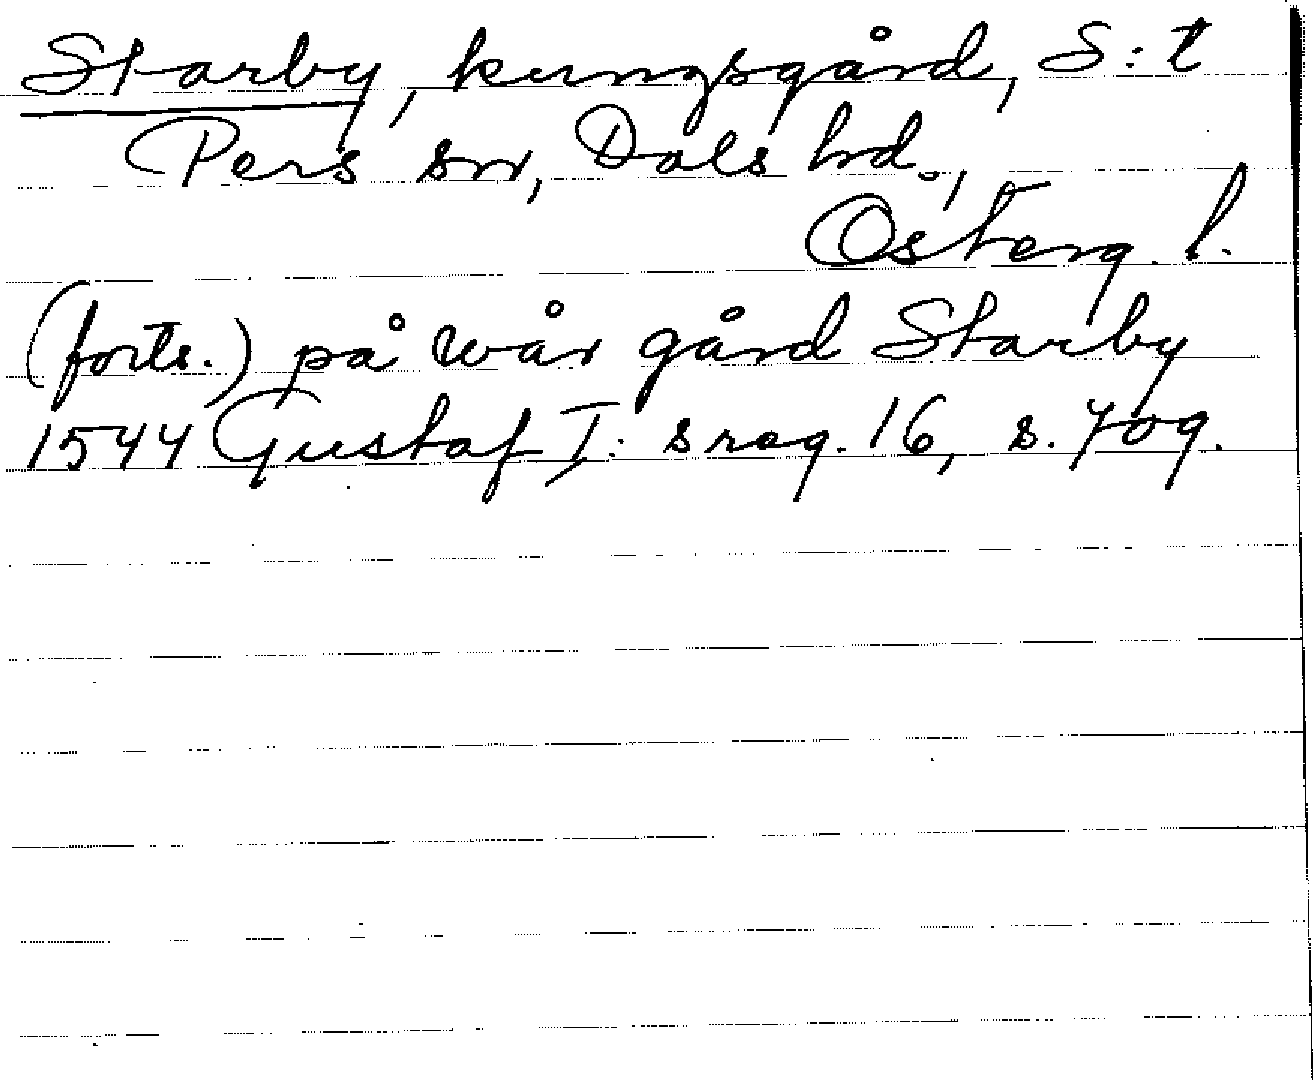 Starby, kungsgård, S:t
Pers sn, Dals hd.,
Österg. l.
(forts.) på wår gård Starby
1544 Gustaf I:s reg. 16, s. 709.